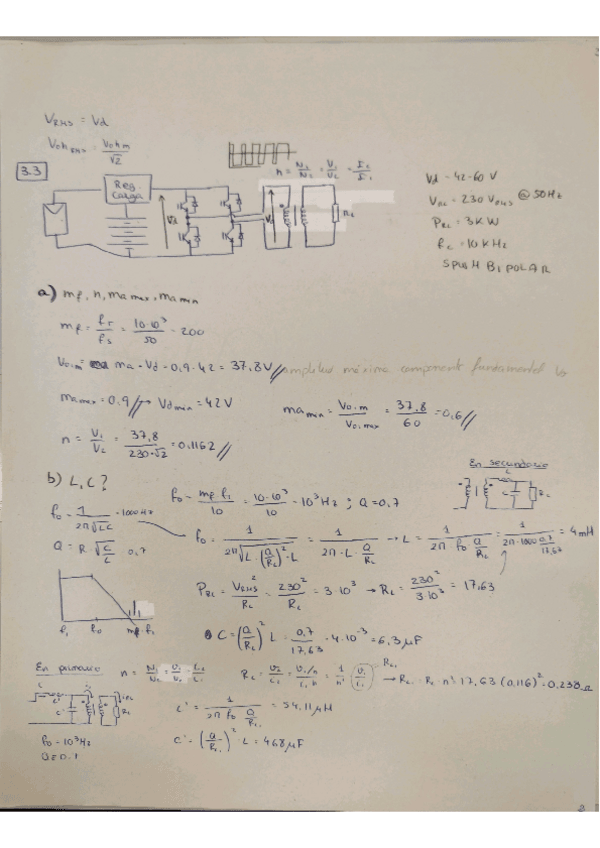 V_RMS = Vd
V_oh RMS = V_oh m / √2
3.3
Reg. Carga
Vd
n = N1/N2 = V1/V2 = I2/I1
RL
Vd = 42-60 V
V_RL = 230 V_RMS @ 50Hz
P_RL = 3 KW
fc = 10 KHz
SPWM BIPOLAR
a) mf, n, ma max, ma min
mf = fr/fs = 10·10³/50 = 200
Vo1m = ma · Vd = 0,9 · 42 = 37,8V // amplitud máxima component fundamental Vo
ma max = 0,9 // → Vd min = 42V
ma min = Vo1m / Vo1max = 37,8/60 = 0,6 //
n = V1/V2 = 37,8/(230·√2) = 0,1162 //
b) L, C?
En secundario
L
C
RL
f0 = 1/(2π√LC) = 1000 Hz
f0 = mf·f1/10 = 10·10³/10 = 10³ Hz ; Q = 0,7
Q = R √(C/L) = 0,7
f0 = 1/(2π√(L·(Q/RL)²·L)) = 1/(2π·L·Q/RL) → L = 1/(2π f0 Q/RL) = 1/(2π·1000 0,7/17,63) = 4mH
P_RL = V_RMS²/RL = 230²/RL = 3·10³ → RL = 230²/3·10³ = 17,63
f1 f0 mf·f1
C = (Q/RL)² L = 0,7/17,63 · 4·10⁻³ = 6,3 µF
En primario
n = N1/N2 = V1/V2 = I2/I1
→ RL1 = RL·n² = 17,63 (0,116)² = 0,238 Ω
L' = 1/(2π f0 Q/RL) = 54,11 µH
C' = (Q/RL)² · L = 468 µF
f0 = 10³ Hz